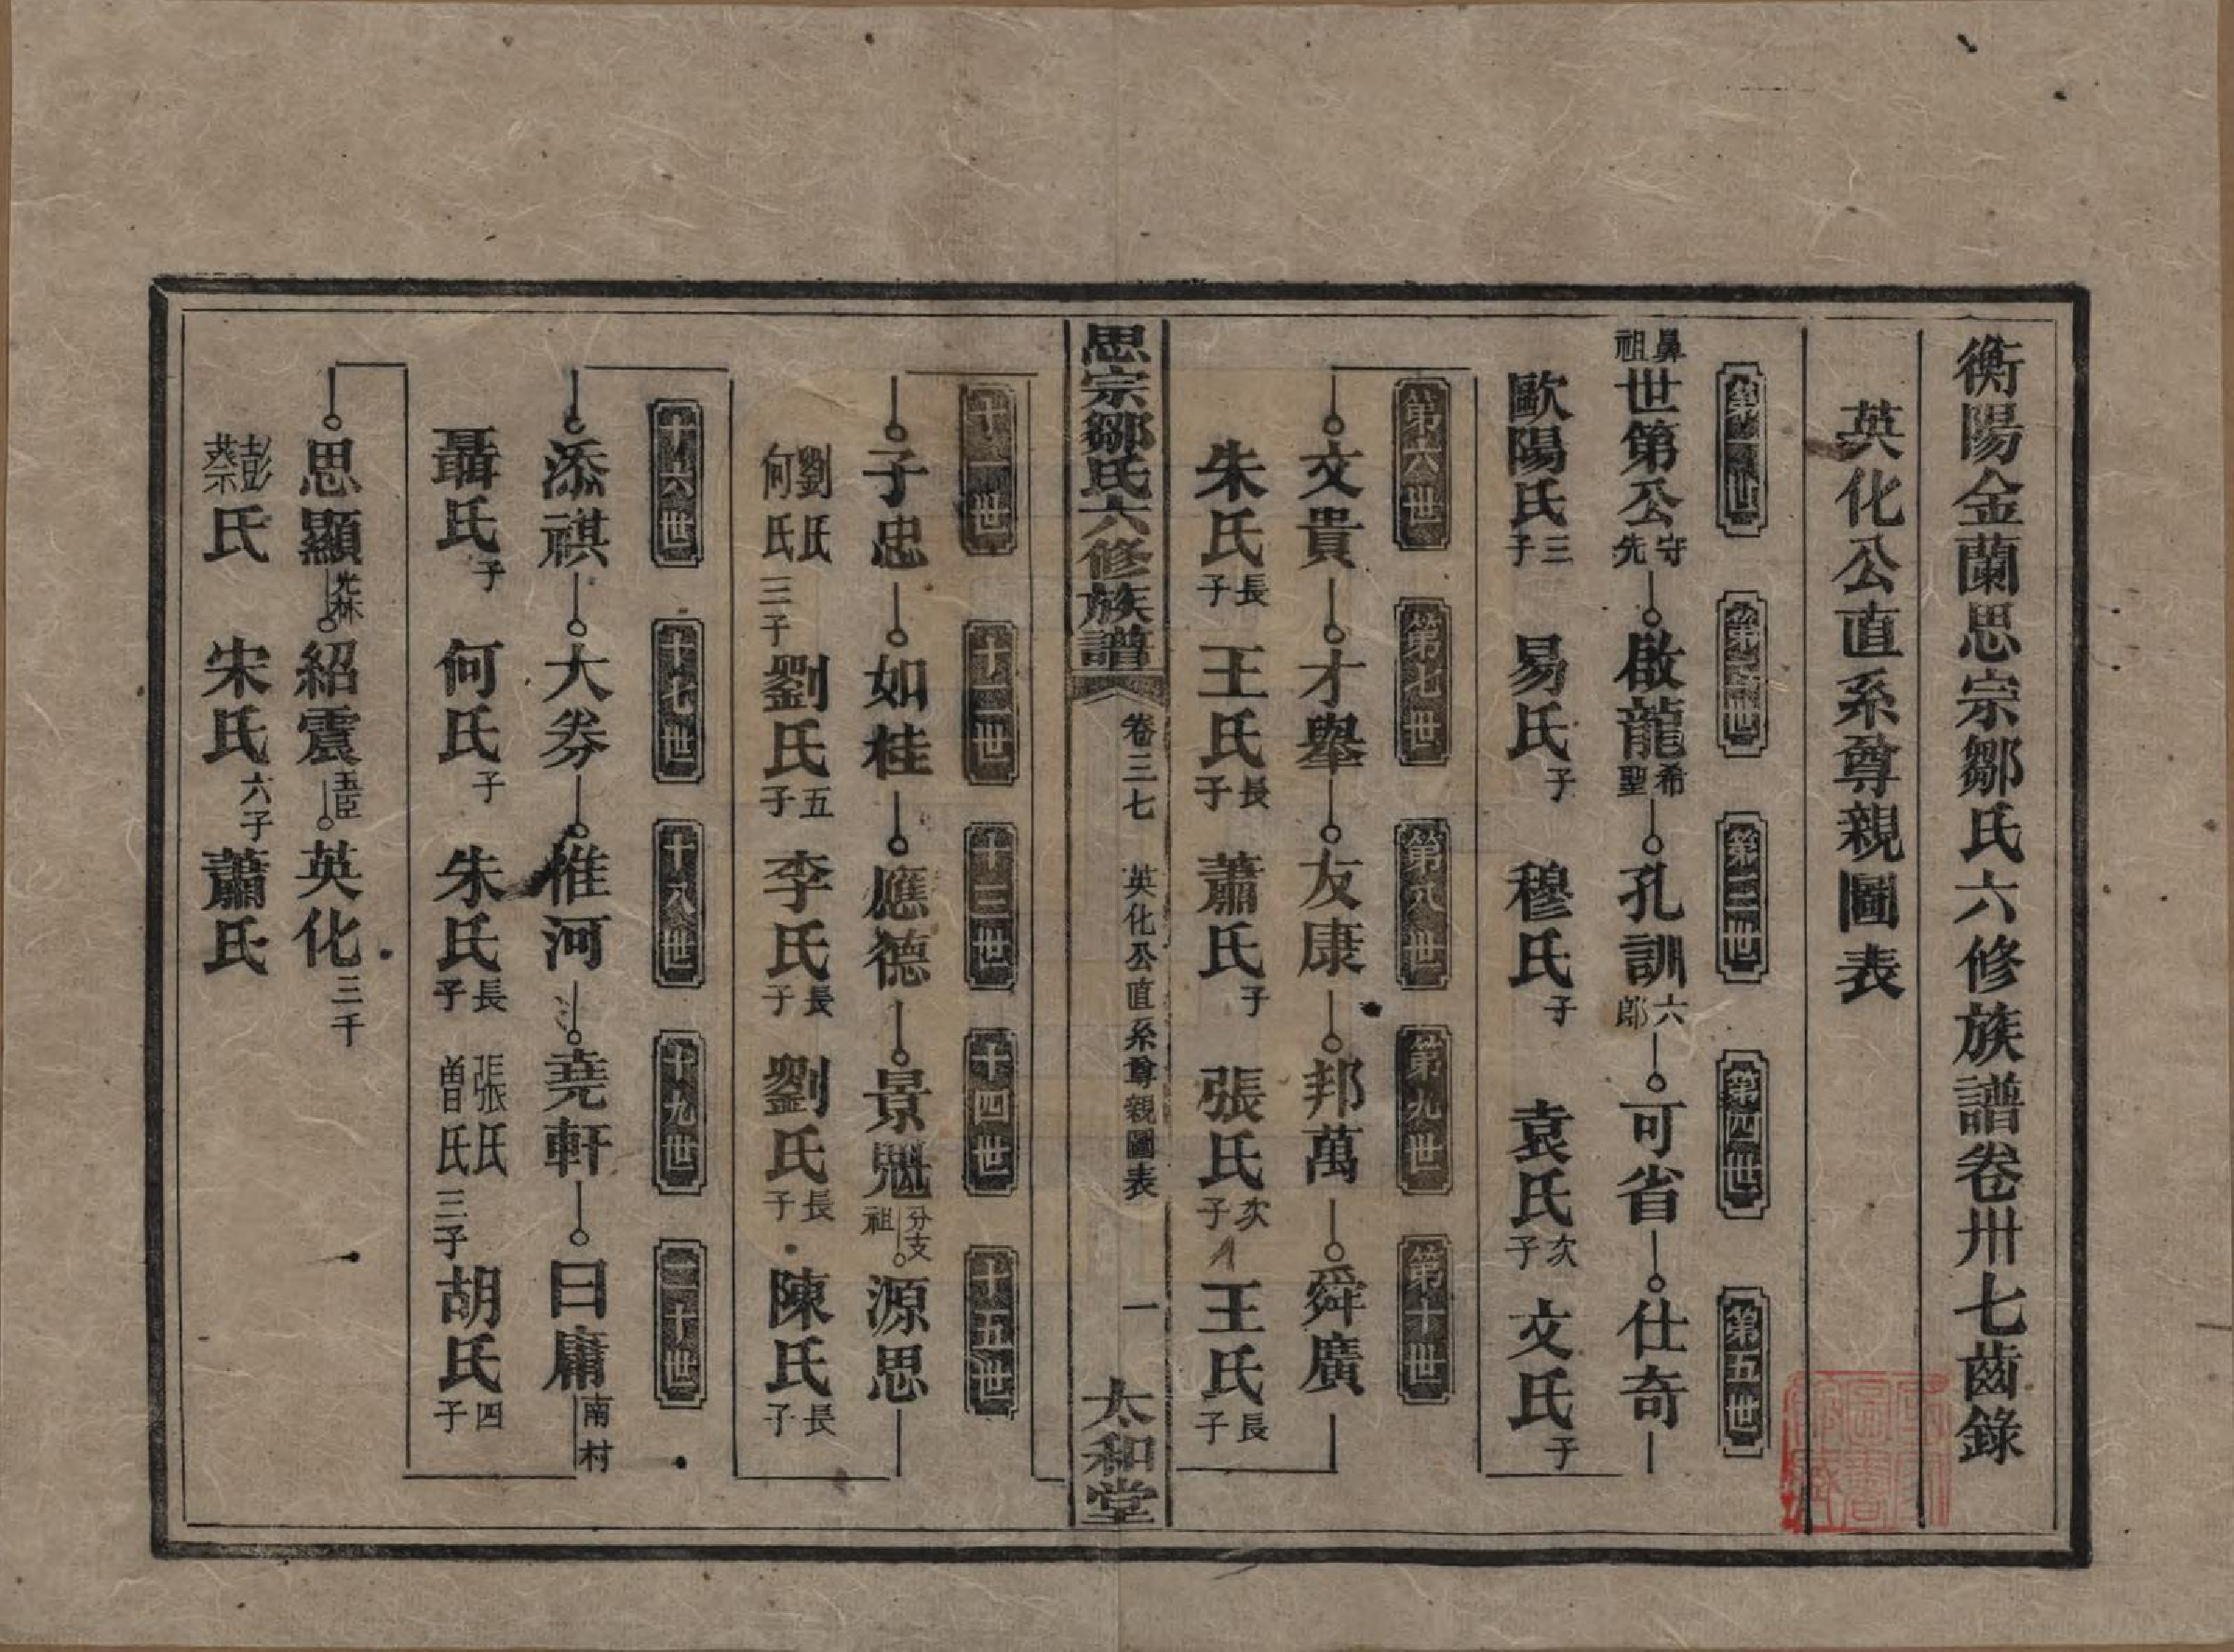 衡陽金蘭思宗鄒氏六修族譜卷卅七齒錄
英化公直系尊親圖表
第一世 第二世 第三世 第四世 第五世
鼻祖世第公守先 啟龍希聖 孔訓六郎 可省 仕奇
歐陽氏三子 易氏子 穆氏子 袁氏次子 文氏子
第六世 第七世 第八世 第九世 第十世
文貴 才舉 友康 邦萬 舜廣
朱氏長子 王氏長子 蕭氏子 張氏次子 王氏長子
思宗鄒氏六修族譜 卷三七 英化公直系尊親圖表 一 太和堂
十一世 十二世 十三世 十四世 十五世
子忠 如桂 應德 景魁分支祖 源思
劉氏何氏三子 劉氏五子 李氏長子 劉氏長子 陳氏長子
十六世 十七世 十八世 十九世 二十世
添祺 大券 惟河 堯軒 曰庸南村
聶氏子 何氏子 朱氏長子 張氏曾氏三子 胡氏四子
思顯光林 紹震 英化三千
彭蔡氏 宋氏六子 蕭氏